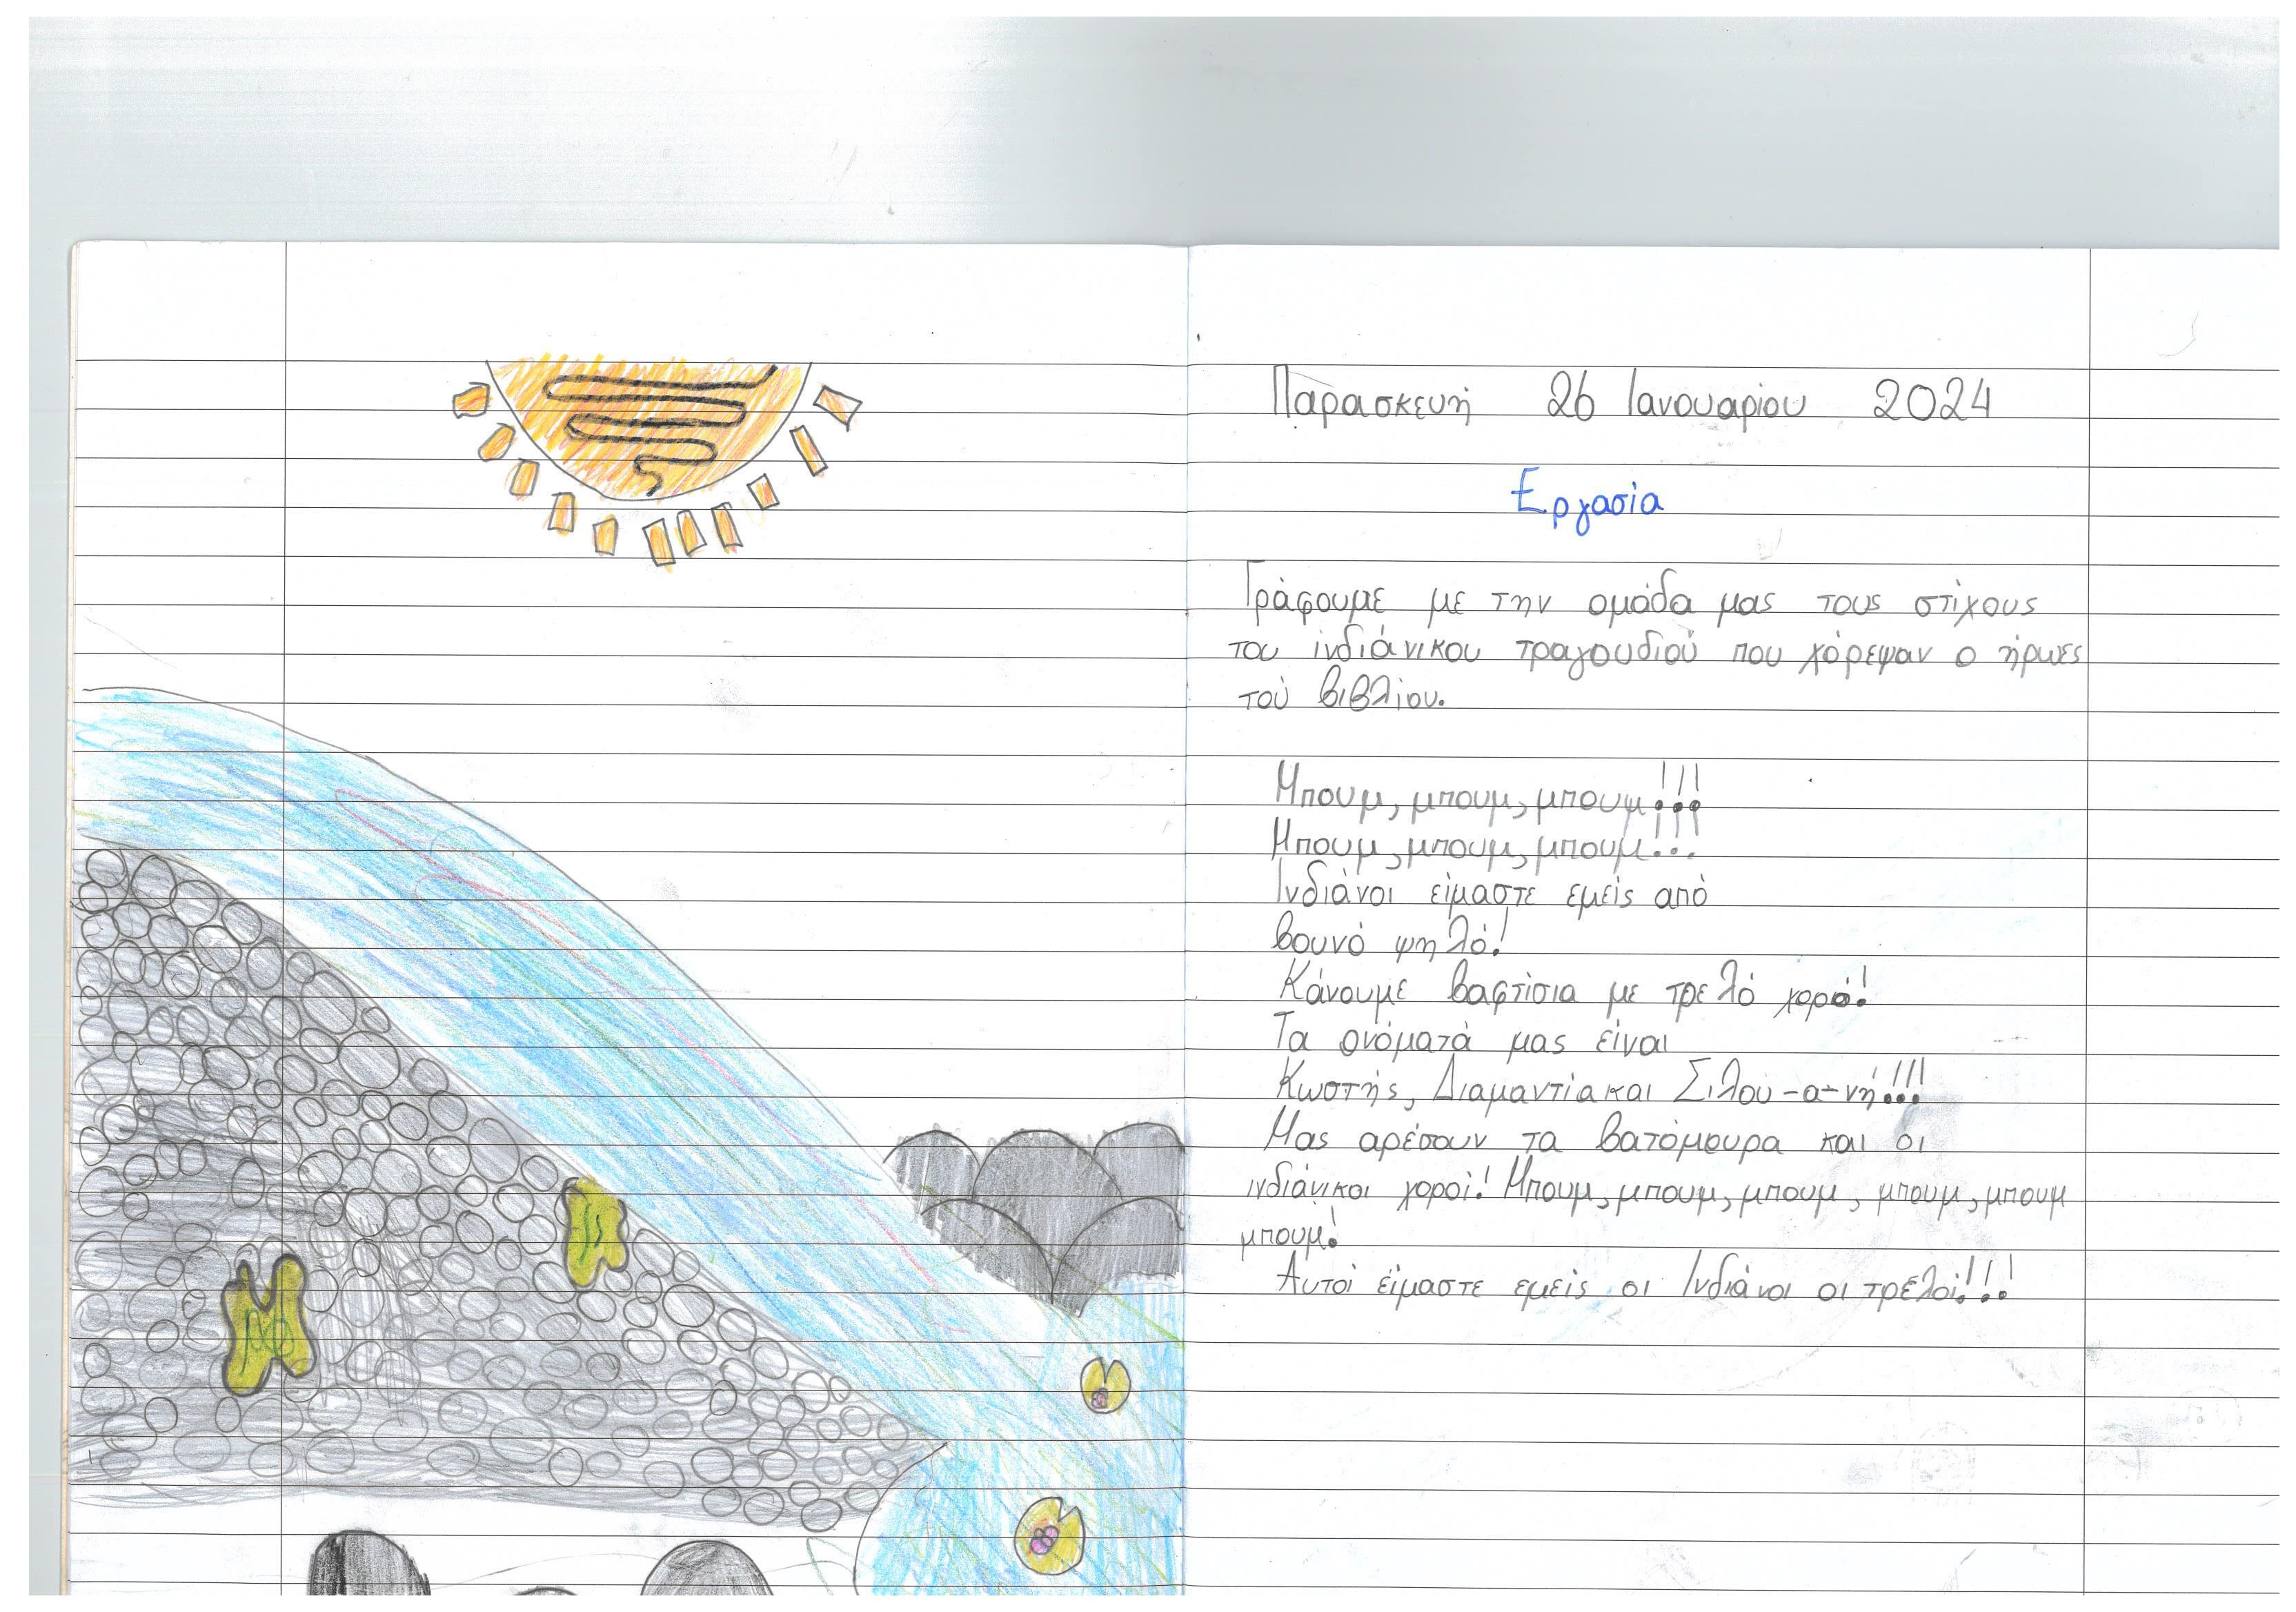 Παρασκευή 26 Ιανουαρίου 2024
Εργασία
Γράφουμε με την ομάδα μας τους στίχους
του ινδιάνικου τραγουδιού που χόρεψαν ο ήρωες
τού βιβλίου.
Μπουμ, μπουμ, μπουμ!!!
Μπουμ, μπουμ, μπουμ!!!
Ινδιάνοι είμαστε εμείς από
βουνό ψηλό!
Κάνουμε βαφτίσια με τρελό χορό!
Τα ονόματά μας είναι
Κωστής, Διαμαντία και Σιλού-α-νή!!!
Μας αρέσουν τα βατόμουρα και οι
ινδιάνικοι χοροί! Μπουμ, μπουμ, μπουμ, μπουμ, μπουμ
μπουμ!
Αυτοί είμαστε εμείς οι Ινδιάνοι οι τρελοί!!!